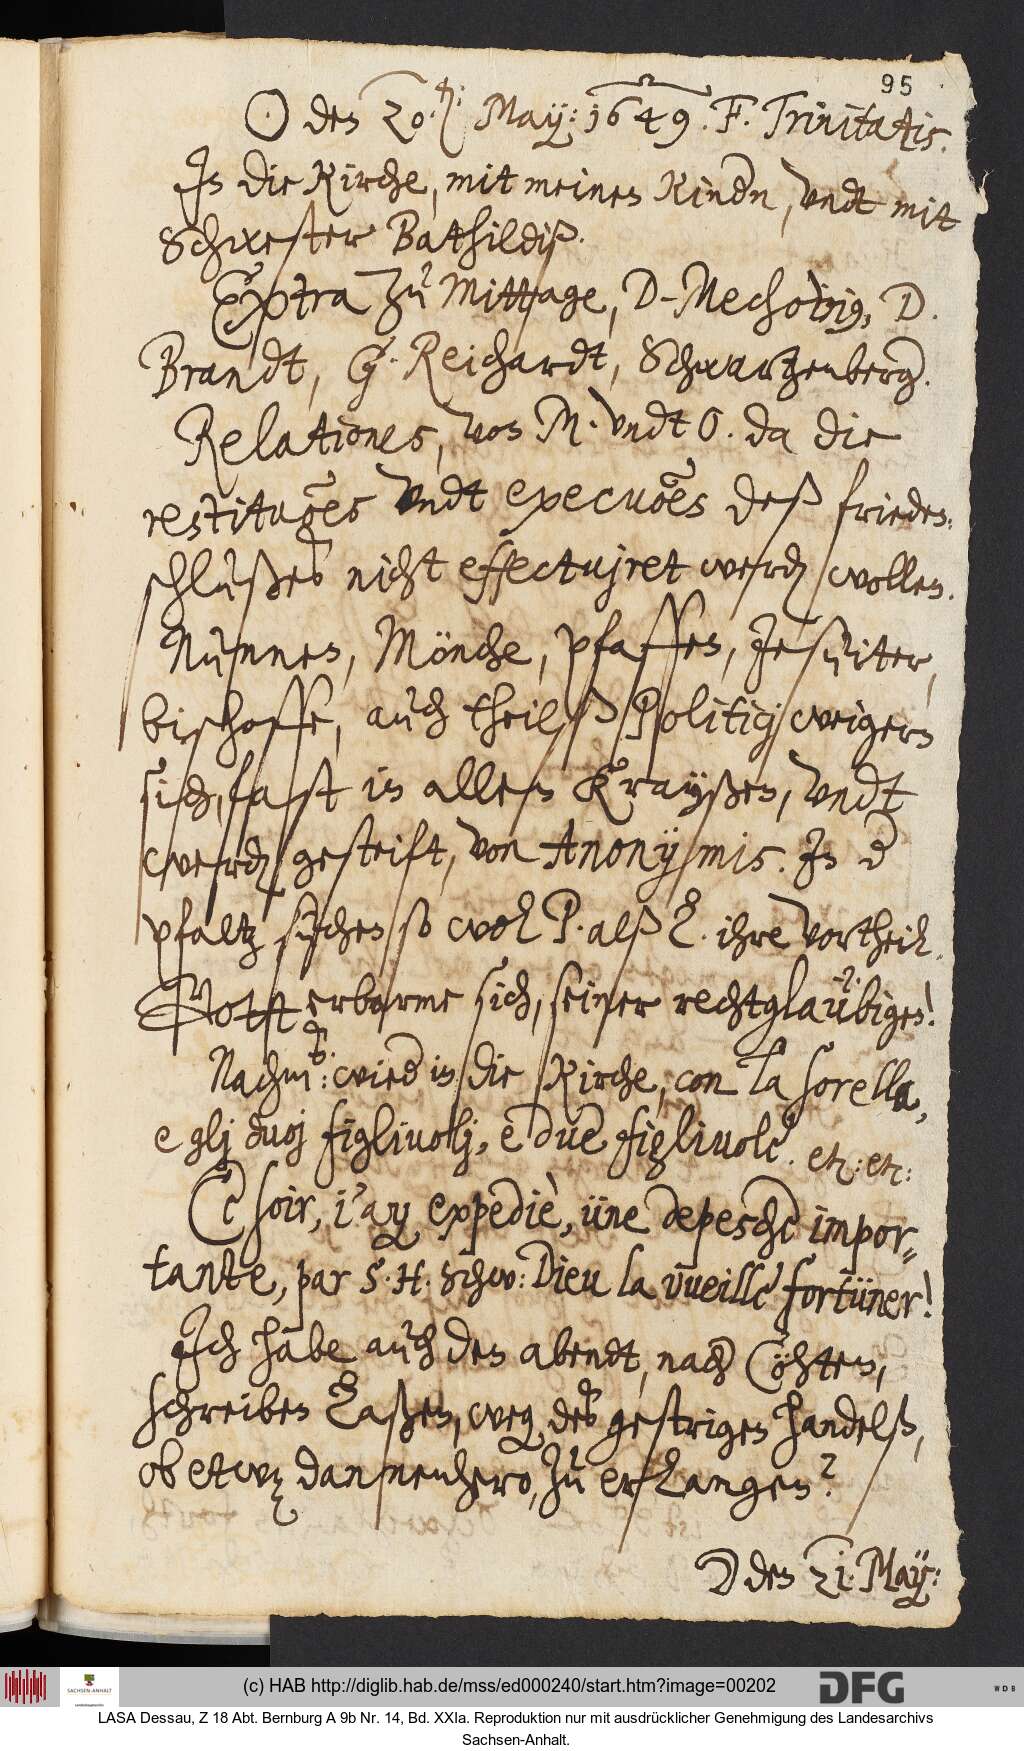 95
☉ den 20.ten: May: 1649. F. Trinitatis.
In die Kirche, mit meinen Kindn, undt mit
Schwester Bathildiß.
Extra zu Mittage, D. Mechovig, D.
Brandt, G. Reichardt, Schwartzenberg.
Relationes, von M. undt O. da die
restitutiões undt executiões deß friedens
schlußes nicht effectuiret werden wollen.
Nunnen, Mönche, pfaffen, Jesuiter,
bischoffe, auch theilß Politicj weigern
sich, fast in allen Krayßen, undt
werden gesteift, von Anonymis. In der
pfaltz suchen so wol P. alß L. ihre Vortheil.
Gott erbarme sich, seiner rechtgläubigen!
Nachm: wied in die Kirche, con la sorella,
e glj duoj figlivolj, e due figlivole. etc: etc:
Ce soir, j'ay expediè, üne depesche impor-
tante, par S. H. Schw: Dieu la vueille fortüner!
Ich habe auch den abendt, nach Cöhten,
schreiben laßen, weg des gestrigen handelß,
ob etwz dannenhero, zu erlangen?
☽ den 21. May:
(c) HAB http://diglib.hab.de/mss/ed000240/start.htm?image=00202
DFG
WDB
SACHSEN-ANHALT
LASA Dessau, Z 18 Abt. Bernburg A 9b Nr. 14, Bd. XXIa. Reproduktion nur mit ausdrücklicher Genehmigung des Landesarchivs
Sachsen-Anhalt.